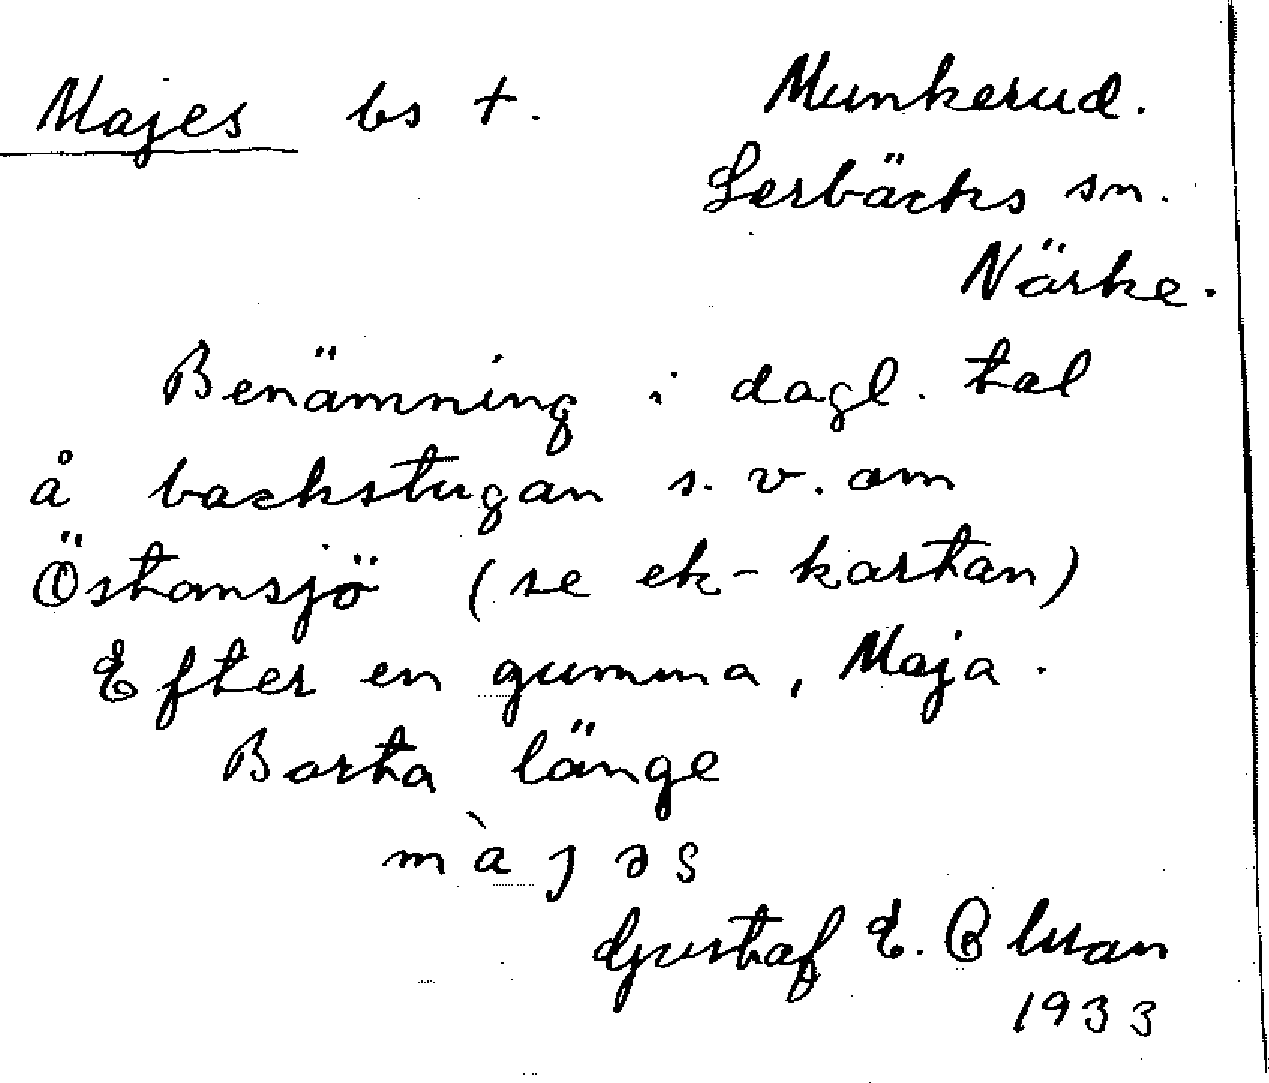 Majes bs †. Munkerud.
Lerbäcks sn.
Närke.
Benämning i dagl. tal
å backstugan s.v. om
Östansjö (se ek-kartan)
Efter en gumma, Maja.
Borta länge
màjəs
Gustaf E.
1933